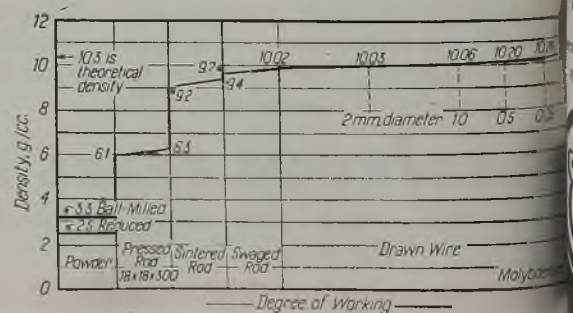 12
10
8
6
4
2
0
Density, g/cc.
10.3 is
theoretical
density
6.1
6.3
9.2
9.7
9.4
10.02
10.03
10.06
10.20
2 mm. diameter
1.0
0.5
3.3 Ball-Milled
2.5 Reduced
Powder
Pressed
Rod
18×18×300
Sintered
Rod
Swaged
Rod
Drawn Wire
Degree of Working